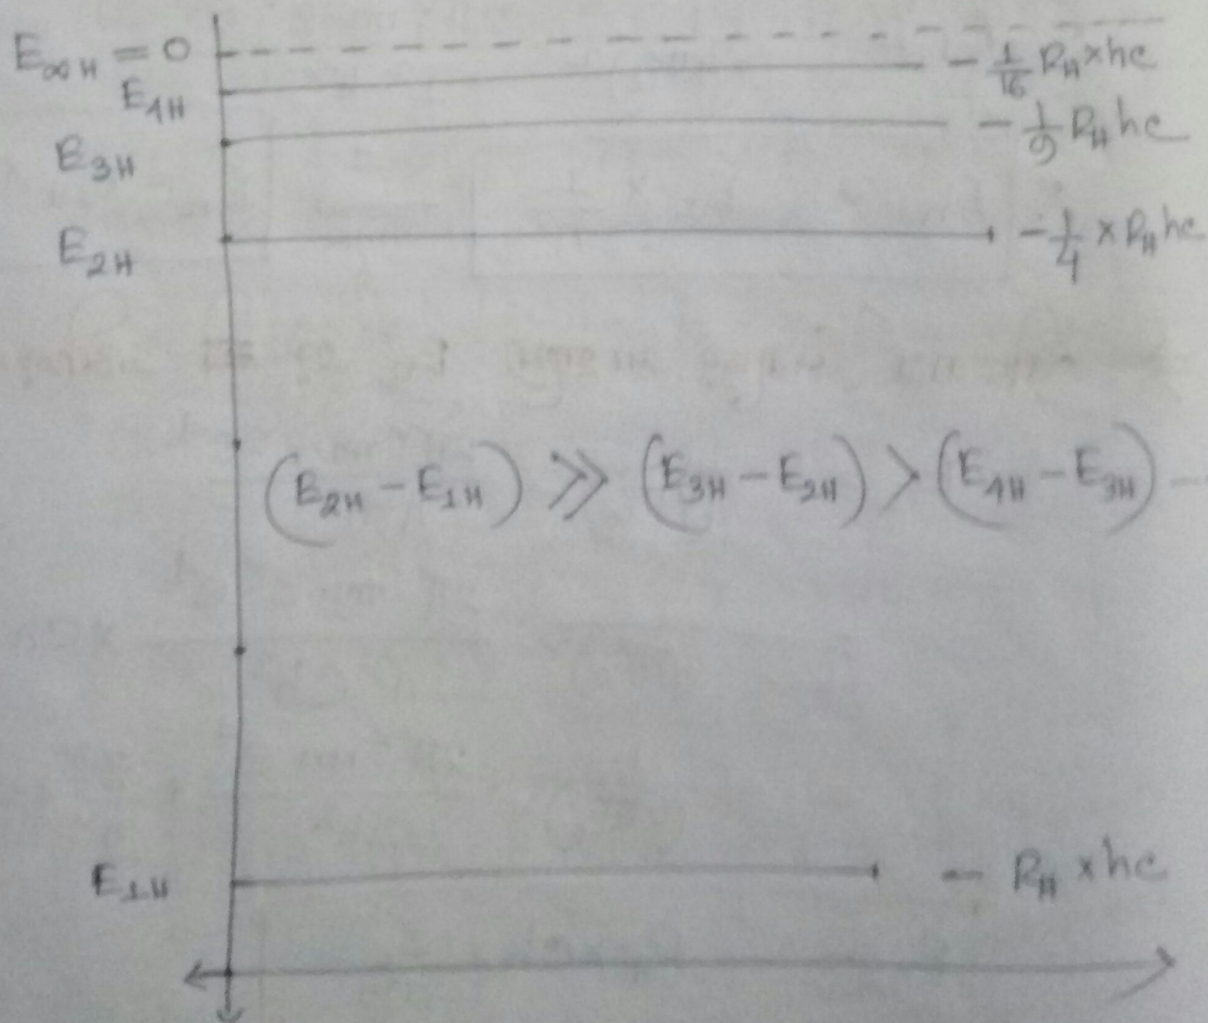 E∞H = 0
E4H - 1/16 RH × hc
E3H - 1/9 RH hc
E2H - 1/4 × RH hc
(E2H - E1H) >> (E3H - E2H) > (E4H - E3H) --
E1H - RH × hc